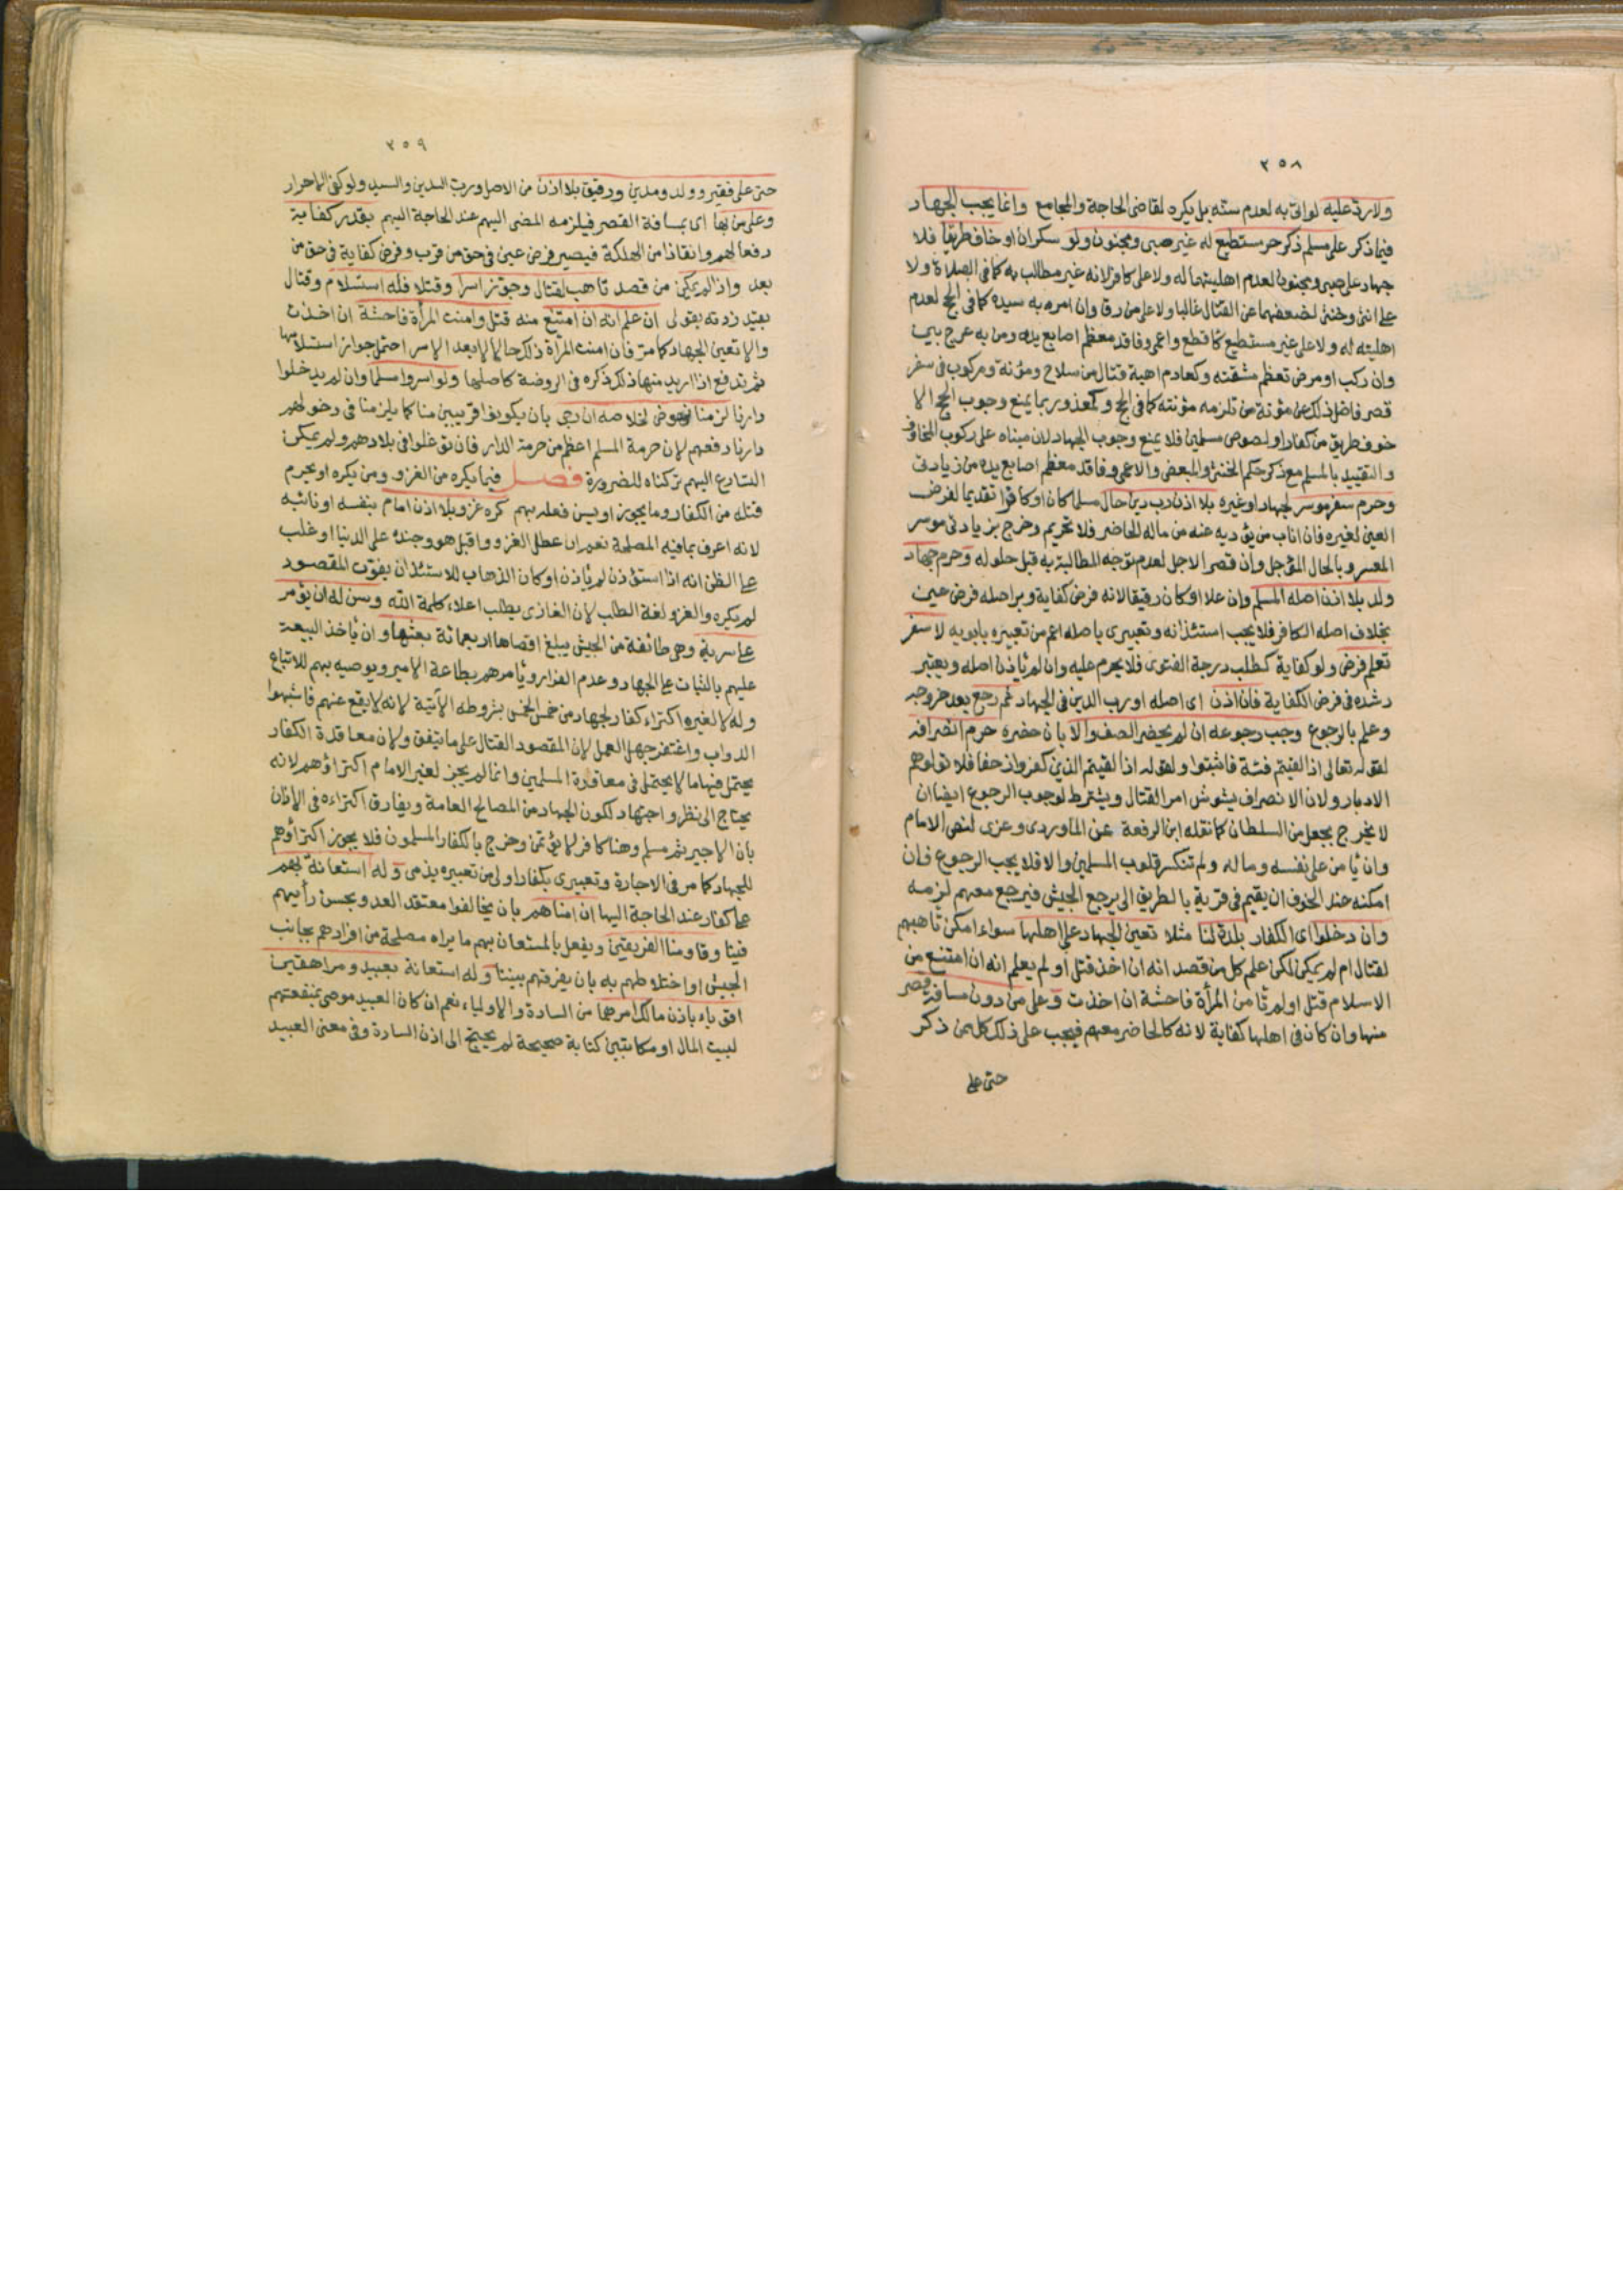 ٣٥٨
ولا رد عليه لو اتى به لعدم سنه بل يكره لقاضى الحاجة والمجامع وانما يجب الجهاد
فيما ذكر على مسلم ذكر حر مستطيع له غير صبى ومجنون ولو سكران او خاف طريقا فلا
جهاد على صبى ومجنون لعدم اهليتهما له ولا على كافر لانه غير مطالب به كما فى الصلاة ولا
على انثى وخنثى لضعفهما عن القتال غالبا ولا على من رق وان امره به سيده كما فى الحج لعدم
اهليته له ولا على غير مستطيع كاقطع واعمى وفاقد معظم اصابع يده ومن به عرج بين
وان ركب او مرض تعظم مشقته وكعادم اهبة قتال من سلاح ومؤنة ومركوب فى سفر
قصر فاضل ذلك عن مؤنة من تلزمه مؤنته كما فى الحج وكمعذور بما يمنع وجوب الحج الا
خوف طريق من كفار او لصوص مسلمين فلا يمنع وجوب الجهاد لان مبناه على ركوب المخاوف
والتقييد بالمسلم مع ذكر حكم الخنثى والمبعض والاعمى وفاقد معظم اصابع يده من زيادتى
وحرم سفر موسر لجهاد او غيره بلا اذن رب دين حال مسلما كان او كافرا تقديما لفرض
العين لغيره فان اناب من يؤديه عنه من ماله الحاضر فلا تحريم وخرج بزيادتى موسر
المعسر وبالحال المؤجل وان قصر الاجل لعدم توجه المطالبة به قبل حلوله وحرم جهاد
ولد بلا اذن اصله المسلم وان علا او كان رقيقا لانه فرض كفاية وبر اصله فرض عين
بخلاف اصله الكافر فلا يجب استئذانه وتعبيرى باصله اعم من تعبيره بابويه لا سفر
تعلم فرض ولو كفاية كطلب درجة الفتوى فلا يحرم عليه وان لم ياذن اصله ويعتبر
رشده فى فرض الكفاية فان اذن اى اصله او رب الدين فى الجهاد ثم رجع بعد خروجه
وعلم بالرجوع وجب رجوعه ان لم يحضر الصف والا بان حضره حرم انصرافه
لقوله تعالى اذا لقيتم فئة فاثبتوا ولقوله اذا لقيتم الذين كفروا زحفا فلا تولوهم
الادبار ولان الانصراف يشوش امر القتال ويشترط لوجوب الرجوع ايضا ان
لا يخرج بجعل من السلطان كما نقله ابن الرفعة عن الماوردى وعزى لنص الامام
وان يامن على نفسه وماله ولم تنكسر قلوب المسلمين والا فلا يجب الرجوع فان
امكنه عند الخوف ان يقيم فى قرية بالطريق الى يرجع الجيش فيرجع معهم لزمه
وان دخلوا اى الكفار بلدة لنا مثلا تعين الجهاد على اهلها سواء امكن تاهبهم
لقتال ام لم يمكن لكن علم كل من قصد انه ان اخذ قتل او لم يعلم انه ان امتنع من
الاسلام قتل او لم تامن المرأة فاحشة ان اخذت وعلى من دون مسافة قصر
منها وان كان فى اهلها كفاية لانه كالحاضر معهم فيجب على ذلك كل من ذكر
حتى على
٣٥٩
حتى على فقير وولد ومدين ورقيق بلا اذن من الاصل ورب الدين والسيد ولو كفى الاحرار
وعلى من بها اى بمسافة القصر فيلزمه المضى اليهم عند الحاجة اليهم بقدر كفاية
دفعا لهم وانقاذا من الهلكة فيصير فرض عين فى حق من قرب وفرض كفاية فى حق من
بعد واذا لم يمكن من قصد تاهب لقتال وجوز اسرا وقتلا فله استسلام وقتال
بقيد زدته بقولى ان علم انه ان امتنع منه قتل وامنت المرأة فاحشة ان اخذت
والا تعين الجهاد كما مر فان امنت المرأة ذلك حالا لا بعد الاسر احتمل جواز استسلامها
ثم تدفع اذا اريد منها ذلك ذكره فى الروضة كاصلها ولو اسروا مسلما وان لم يدخلوا
دارنا لزمنا نهوض لخلاصه ان رجى بان يكونوا قريبين منا كما يلزمنا فى دخولهم
دارنا دفعهم لان حرمة المسلم اعظم من حرمة الدار فان توغلوا فى بلادهم ولم يمكن
التسارع اليهم تركناه للضرورة فصل فيما يكره من الغزو ومن يكره او يحرم
قتله من الكفار وما يجوز او يسن فعله بهم كره غزو بلا اذن امام بنفسه او نائبه
لانه اعرف بما فيه المصلحة نعم ان عطل الغزو واقبل هو وجنده على الدنيا او غلب
على الظن انه اذا استؤذن لم ياذن او كان الذهاب للاستئذان يفوت المقصود
لم يكره والغزو لغة الطلب لان الغازى يطلب اعلاء كلمة الله وسن له ان يؤمر
على سرية وهى طائفة من الجيش يبلغ اقصاها اربعمائة بعثها وان ياخذ البيعة
عليهم بالثبات على الجهاد وعدم الفرار ويامرهم بطاعة الامير ويوصيه بهم للاتباع
وله لا لغيره اكتراء كفار لجهاد من خمس الخمس بشروطه الآتية لانه لا يقع عنهم فاشبهوا
الدواب واغتفر جهل العمل لان المقصود القتال على ما يتفق ولان معاقدة الكفار
يحتمل فيها ما لا يحتمل فى معاقدة المسلمين وانما لم يجز لغير الامام اكتراؤهم لانه
يحتاج الى نظر واجتهاد لكون الجهاد من المصالح العامة ويفارق اكتراءه فى الاذان
بان الاجير ثم مسلم وهنا كافر لا يؤتمن وخرج بالكفار المسلمون فلا يجوز اكتراؤهم
للجهاد كما مر فى الاجارة وتعبيرى بكفار اولى من تعبيره بذمى وله استعانة بهم
على كفار عند الحاجة اليها ان امناهم بان يخالفوا معتقد العدو ويحسن رأيهم
فينا وقاومنا الفريقين ويفعل بالمستعان بهم ما يراه مصلحة من افرادهم بجانب
الجيش او اختلاطهم به بان يفرقهم بيننا وله استعانة بعبيد ومراهقين
اقوياء باذن مالك امرهما من السادة والاولياء نعم ان كان العبيد موصى بمنفعتهم
لبيت المال او مكاتبين كتابة صحيحة لم يحتج الى اذن السادة وفى معنى العبيد